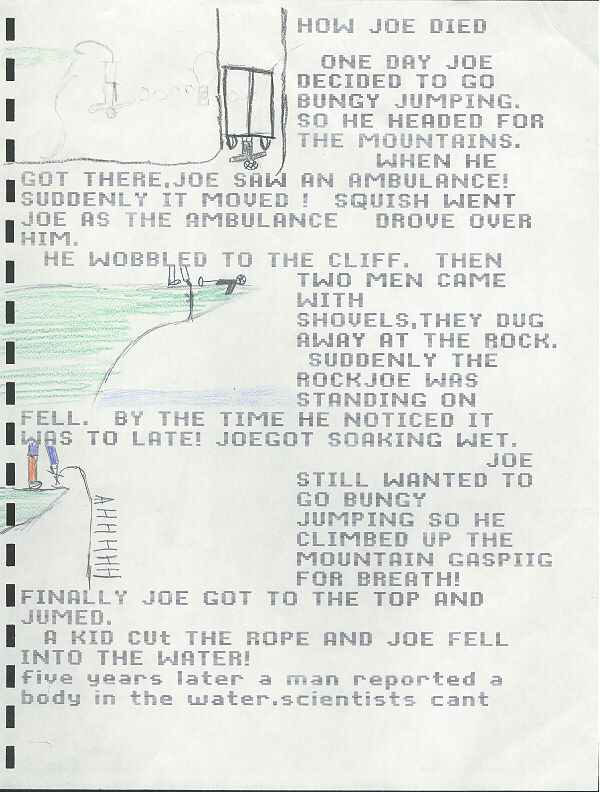 HOW JOE DIED
ONE DAY JOE
DECIDED TO GO
BUNGY JUMPING.
SO HE HEADED FOR
THE MOUNTAINS.
WHEN HE
GOT THERE,JOE SAW AN AMBULANCE!
SUDDENLY IT MOVED ! SQUISH WENT
JOE AS THE AMBULANCE DROVE OVER
HIM.
HE WOBBLED TO THE CLIFF. THEN
TWO MEN CAME
WITH
SHOVELS,THEY DUG
AWAY AT THE ROCK.
SUDDENLY THE
ROCKJOE WAS
STANDING ON
FELL. BY THE TIME HE NOTICED IT
WAS TO LATE! JOEGOT SOAKING WET.
JOE
STILL WANTED TO
GO BUNGY
JUMPING SO HE
CLIMBED UP THE
MOUNTAIN GASPIIG
FOR BREATH!
AHHHHHH
FINALLY JOE GOT TO THE TOP AND
JUMED.
A KID CUt THE ROPE AND JOE FELL
INTO THE WATER!
five years later a man reported a
body in the water.scientists cant